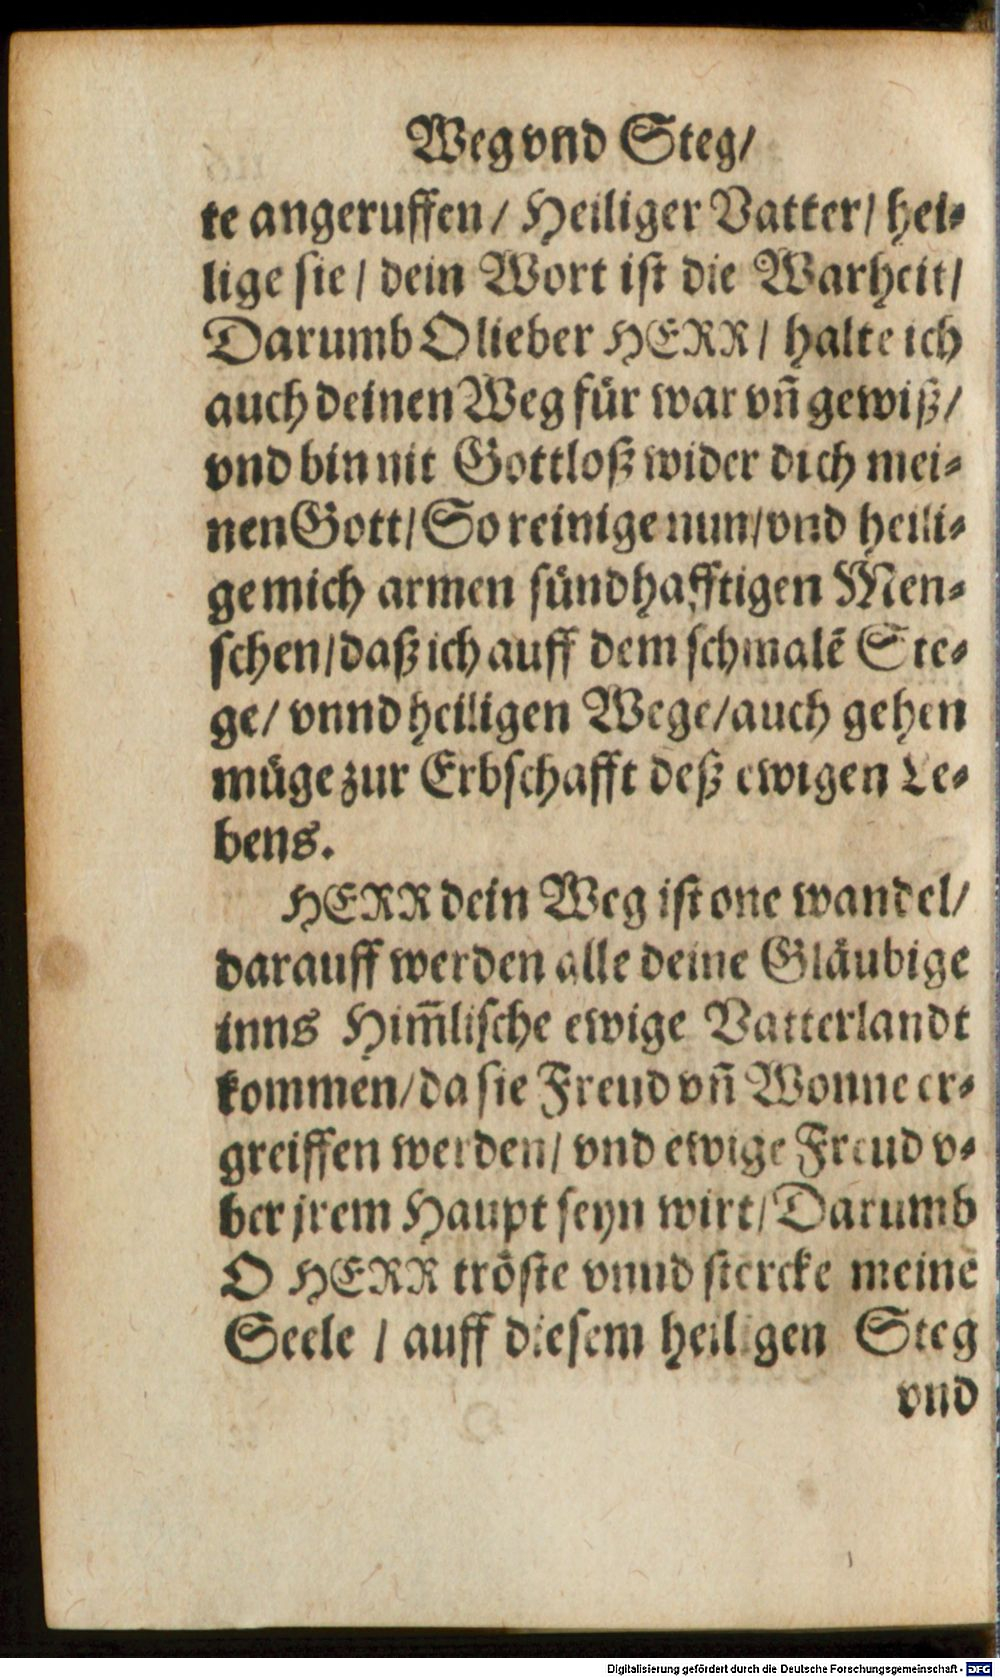 Weg vnd Steg/
te angeruffen/ Heiliger Vatter/ hei-
lige sie/ dein Wort ist die Warheit/
Darumb O lieber HERR/ halte ich
auch deinen Weg für war vñ gewiß/
vnd bin nit Gottloß wider dich mei-
nen Gott/ So reinige nun/ vnd heili-
ge mich armen sündhafftigen Men-
schen/ daß ich auff dem schmalẽ Ste-
ge/ vnnd heiligen Wege/ auch gehen
müge zur Erbschafft deß ewigen Le-
bens.
HERR dein Weg ist one wandel/
darauff werden alle deine Gläubige
inns Him̃lische ewige Vatterlandt
kommen/ da sie Freud vñ Wonne er-
greiffen werden/ vnd ewige Freud v-
ber jrem Haupt seyn wirt/ Darumb
O HERR tröste vnnd stercke meine
Seele / auff diesem heiligen Steg
vnd
Digitalisierung gefördert durch die Deutsche Forschungsgemeinschaft - DFG